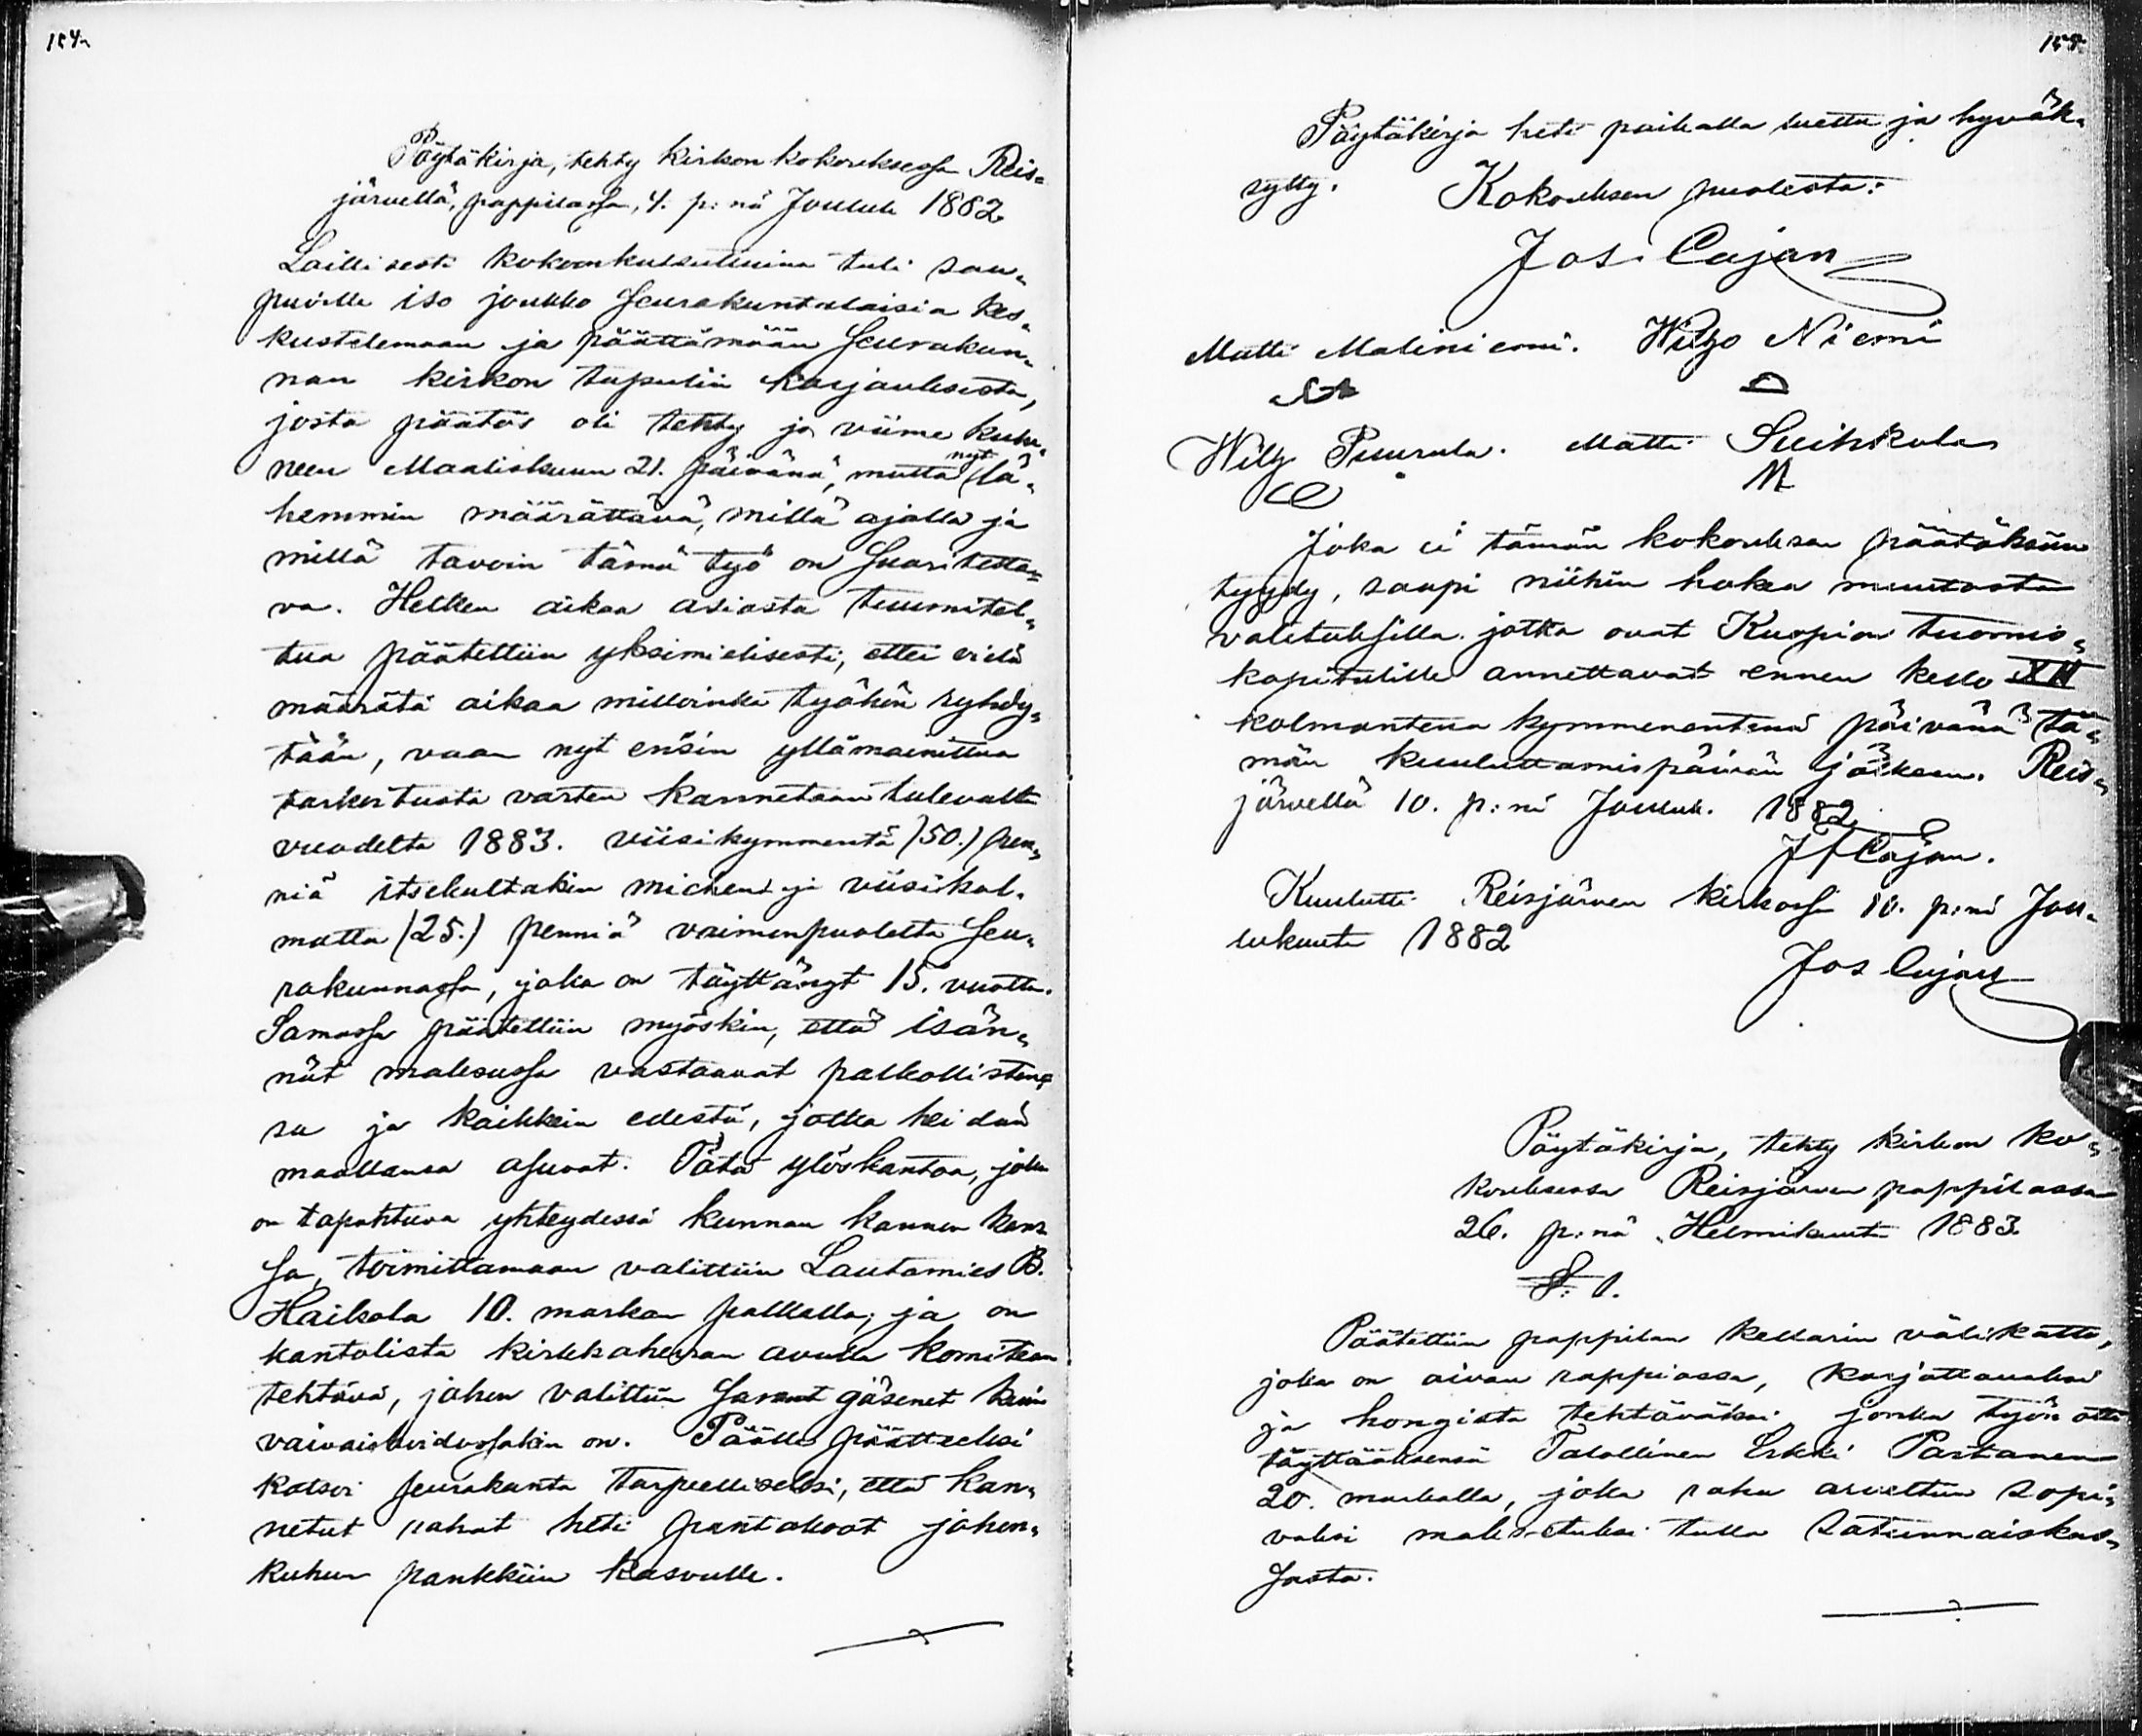 154.
Pöytäkirja, tehty kirkon kokouksessa Reis=
järvellä, pappilassa, 4. p:nä Jouluk 1882
Laillisesti kokoonkutsuttuina tuli saa-
puville iso joukko Seurakuntalaisia kes-
kustelemaan ja päättämään Seurakun-
nan kirkon tapulin korjauksesta,
josta päätös oli tehty jo viime kulu-
neen Maaliskuun 21. päivänä, mutta nyt lä-
hemmin määrättävä, millä ajalla ja
millä tavoin tämä työ on Suoritetta=
va. Hetken aikaa asiasta tuumitel-
tua päätettiin yksimielisesti, ettei vielä
määrätä aikaa milloinka työhön ryhdy-
tään, vaan nyt ensin yllämainittua
tarkoitusta varten kannetaan tulevalta
vuodelta 1883. viisikymmentä (50.) pen-
niä itsekultakin mieheltä ja viisikol-
matta (25.) penniä vaimonpuolelta Seu-
rakunnassa, joka on täyttänyt 15. vuotta.
Samassa päätettiin myöskin, että isän-
nät maksussa vastaavat palkollisten-
sa ja kaikkein edestä, jotka heidän
maallansa asuvat. Tätä ylöskantoa, joka
on tapahtuva yhteydessä kunnan kannon kans
sa, toimittamaan valittiin Lautamies B.
Haikola 10. markan palkalla; ja on
kantolista kirkkoherran avulla komitean
tehtävä, johon valittiin Samat jäsenet kuin
vaivaishoidossakin on. Päälle päätteeksi
katsoi seurakunta tarpeelliseksi, että kan-
netut rahat heti pantakoot johon-
kuhun pankkiin kasvulle.
155.
Pöytäkirja heti paikalla luettu ja hyväk-
sytty. Kokouksen puolesta:
Jos. Cajan
Matti Maliniemi. Wiljo Niemi
Wilj Puurula. Matti Suihkola
M
Joka ei tämän kokouksen päätöksiin
tyydy, saapi niihin hakea muutosta
valituksilla jotka ovat Kuopion tuomio-
kapitulille annettavat ennen kello XII
kolmantena kymmenentenä päivänä tä-
män kuuluttamispäivän jälkeen. Reis-
järvellä 10. p:nä Jouluk. 1882
J F Cajan.
Kuulutti Reisjärven kirkossa 10. p:nä Jou-
lukuuta 1882
Jos Cajan
Pöytäkirja, tehty kirkon ko-
kouksessa Reisjärven pappilassa
26. p:nä Helmikuuta 1883.
§. 1.
Päätettiin pappilan kellarin välikatto,
joka on aivan rappiossa, korjattavaksi
ja hongista tehtäväksi, jonka työn otti
täyttääksensä Talollinen Erkki Partanen
20. markalla, joka raha arveltiin sopi-
vaksi maksetuksi tulla Satunnaiskas-
sasta.